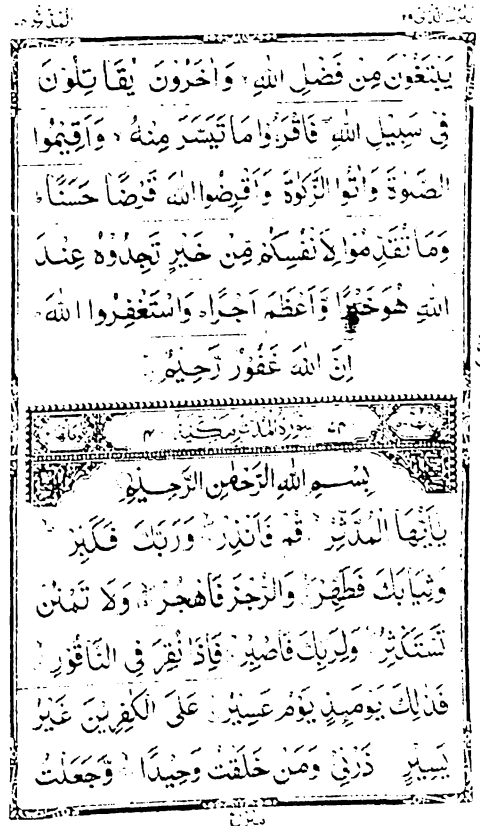 المدثر ٧٤
تبٰرك الذی ٢٩
يَبْتَغُوْنَ مِنْ فَضْلِ اللّٰهِ وَاٰخَرُوْنَ يُقَاتِلُوْنَ
فِیْ سَبِيْلِ اللّٰهِ فَاقْرَءُوْا مَا تَيَسَّرَ مِنْهُ وَاَقِيْمُوا
الصَّلٰوةَ وَاٰتُوا الزَّكٰوةَ وَاَقْرِضُوا اللّٰهَ قَرْضًا حَسَنًا
وَمَا تُقَدِّمُوْا لِاَنْفُسِكُمْ مِّنْ خَيْرٍ تَجِدُوْهُ عِنْدَ
اللّٰهِ هُوَ خَيْرًا وَّاَعْظَمَ اَجْرًا وَاسْتَغْفِرُوا اللّٰهَ
اِنَّ اللّٰهَ غَفُوْرٌ رَّحِيْمٌ
٧٤ سورة المدثر مكية ٤
بِسْمِ اللّٰهِ الرَّحْمٰنِ الرَّحِيْمِ
يٰۤاَيُّهَا الْمُدَّثِّرُ قُمْ فَاَنْذِرْ وَرَبَّكَ فَكَبِّرْ
وَثِيَابَكَ فَطَهِّرْ وَالرُّجْزَ فَاهْجُرْ وَلَا تَمْنُنْ
تَسْتَكْثِرُ وَلِرَبِّكَ فَاصْبِرْ فَاِذَا نُقِرَ فِی النَّاقُوْرِ
فَذٰلِكَ يَوْمَئِذٍ يَّوْمٌ عَسِيْرٌ عَلَی الْكٰفِرِيْنَ غَيْرُ
يَسِيْرٍ ذَرْنِیْ وَمَنْ خَلَقْتُ وَحِيْدًا وَّجَعَلْتُ
منزل